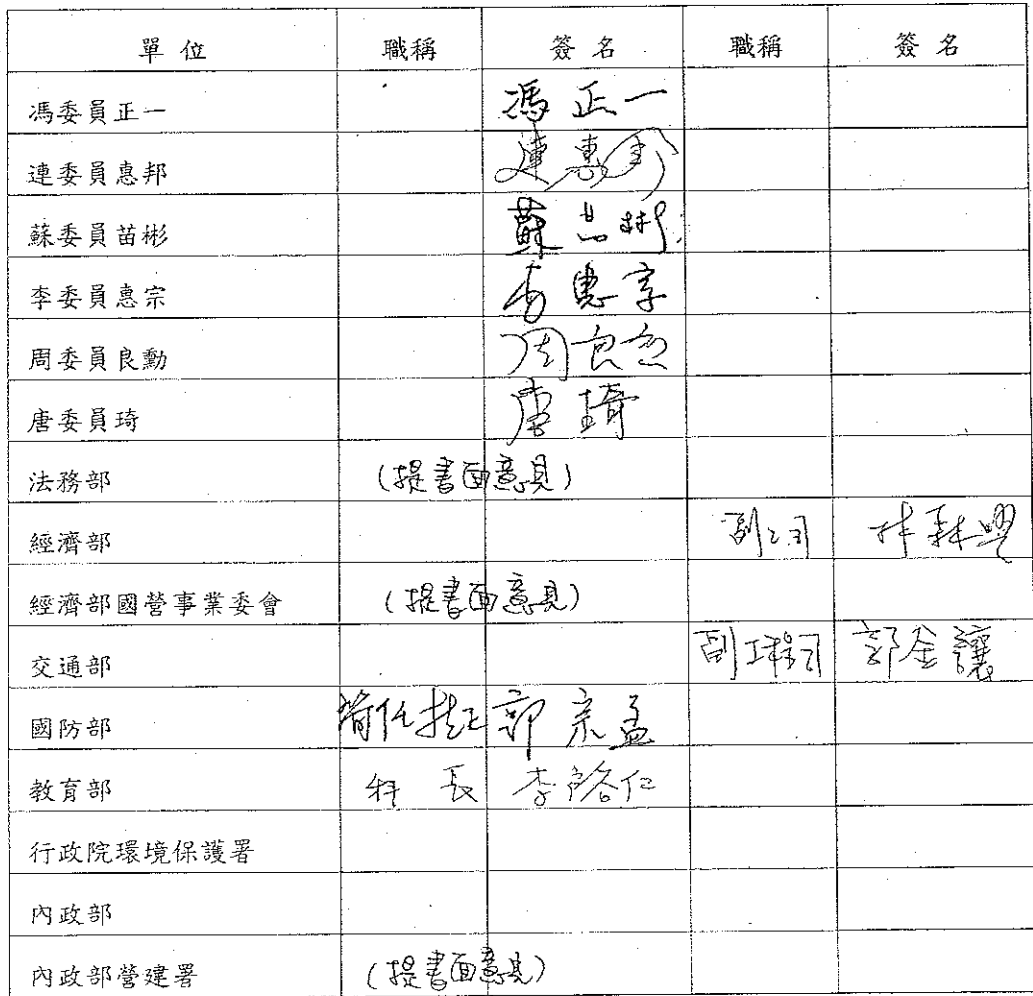 單位 職稱 簽名 職稱 簽名
馮委員正一 馮正一
連委員惠邦 連惠邦
蘇委員苗彬 蘇苗彬
李委員惠宗 李惠宗
周委員良勳 周良勳
唐委員琦 唐琦
法務部 (提書面意見)
經濟部 林森
經濟部國營事業委會 (提書面意見)
交通部 副工程司 郭金讓
國防部 簡任技正 郭宗孟
教育部 科長 李啓仁
行政院環境保護署
內政部
內政部營建署 (提書面意見)